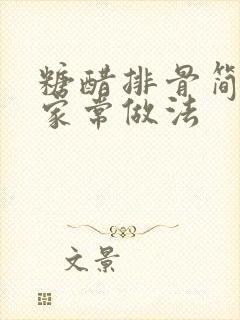 糖醋排骨简
家常做法
文景